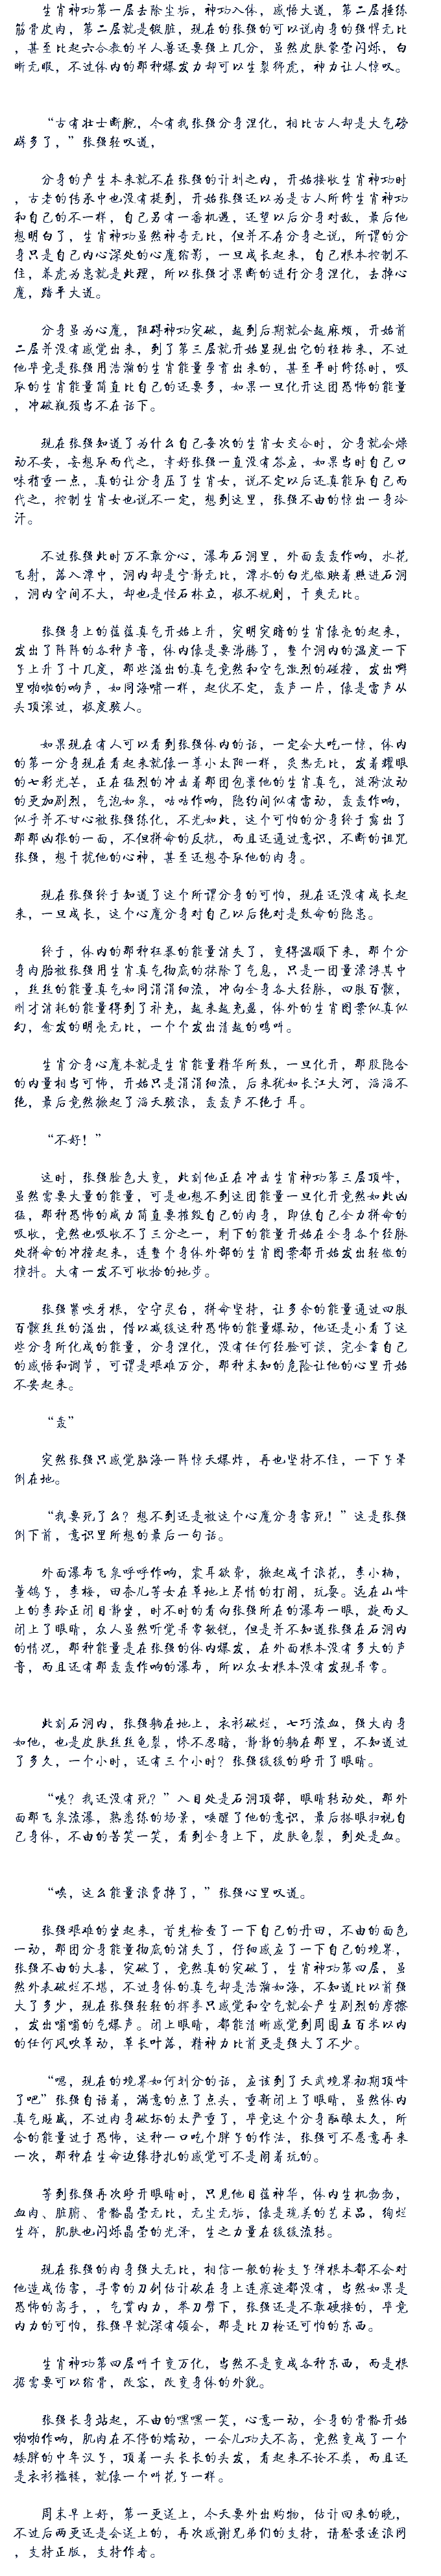 生肖神功第一层去除尘垢，神功入体，感悟大道，第二层捶练
筋骨皮肉，第二层就是锻脏，现在的张强的可以说肉身的强悍无比
，甚至比起六合教的半人兽还要强上几分，虽然皮肤莹莹闪烁，白
晰无暇，不过体内的那种爆发力却可以生裂狮虎，神力让人惊叹。
“古有壮士断腕，今有我张强分身涅化，相比古人却是大气磅
礴多了，”张强轻叹道，
分身的产生本来就不在张强的计划之内，开始接收生肖神功时
，古老的传承中也没有提到，开始张强还以为是古人所修生肖神功
和自己的不一样，自己另有一番机遇，还望以后分身对敌，最后他
想明白了，生肖神功虽然神奇无比，但并不在分身之说，所谓的分
身只是自己内心深处的心魔缩影，一旦成长起来，自己根本控制不
住，养虎为患就是此理，所以张强才果断的进行分身涅化，去掉心
魔，踏平大道。
分身虽为心魔，阻碍神功突破，越到后期就会越麻烦，开始前
二层并没有感觉出来，到了第三层就开始显现出它的桎梏来，不过
他毕竟是张强用浩瀚的生肖能量孕育出来的，甚至平时修练时，吸
取的生肖能量简直比自己的还要多，如果一旦化开这团恐怖的能量
，冲破瓶颈当不在话下。
现在张强知道了为什么自己每次的生肖女交合时，分身就会燥
动不安，妄想取而代之，幸好张强一直没有答应，如果当时自己口
味稍重一点，真的让分身压了生肖女，说不定以后还真能取自己而
代之，控制生肖女也说不一定，想到这里，张强不由的惊出一身冷
汗。
不过张强此时万不敢分心，瀑布石洞里，外面轰轰作响，水花
飞射，落入潭中，洞内却是宁静无比，潭水的白光微映着照进石洞
，洞内空间不大，却也是怪石林立，极不规则，干爽无比。
张强身上的蕴蕴真气开始上升，突明突暗的生肖像亮的起来，
发出了阵阵的各种声音，体内像是要沸腾了，整个洞内的温度一下
子上升了十几度，那些溢出的真气竟然和空气激烈的碰撞，发出噼
里啪啦的响声，如同海啸一样，起伏不定，轰声一片，像是雷声从
头顶滚过，极度骇人。
如果现在有人可以看到张强体内的话，一定会大吃一惊，体内
的第一分身现在看起来就像一尊小太阳一样，炙热无比，发着耀眼
的七彩光芒，正在猛烈的冲击着那团包裹他的生肖真气，涟漪波动
的更加剧烈，气泡如泉，咕咕作响，隐约间似有雷动，轰轰作响，
似乎并不甘心被张强练化，不光如此，这个可怕的分身终于露出了
那那凶狠的一面，不但拼命的反抗，而且还通过意识，不断的诅咒
张强，想干扰他的心神，甚至还想夺取他的肉身。
现在张强终于知道了这个所谓分身的可怕，现在还没有成长起
来，一旦成长，这个心魔分身对自己以后绝对是致命的隐患。
终于，体内的那种狂暴的能量消失了，变得温顺下来，那个分
身肉胎被张强用生肖真气彻底的抹除了气息，只是一团量漂浮其中
，丝丝的能量真气如同涓涓细流，冲向全身各大经脉，四肢百骸，
刚才消耗的能量得到了补充，越来越充盈，体外的生肖图案似真似
幻，愈发的明亮无比，一个个发出清越的鸣叫。
生肖分身心魔本就是生肖能量精华所致，一旦化开，那股隐含
的内量相当可怖，开始只是涓涓细流，后来犹如长江大河，滔滔不
绝，最后竟然掀起了滔天骇浪，轰轰声不绝于耳。
“不好！”
这时，张强脸色大变，此刻他正在冲击生肖神功第三层顶峰，
虽然需要大量的能量，可是也想不到这团能量一旦化开竟然如此凶
猛，那种恐怖的威力简直要摧毁自己的肉身，即使自己全力拼命的
吸收，竟然也吸收不了三分之一，剩下的能量开始在全身各个经脉
处拼命的冲撞起来，连整个身体外部的生肖图案都开始发出轻微的
颤抖。大有一发不可收拾的地步。
张强紧咬牙根，空守灵台，拼命坚持，让多余的能量通过四肢
百骸丝丝的溢出，借以减缓这种恐怖的能量爆动，他还是小看了这
些分身所化成的能量，分身涅化，没有任何经验可谈，完全靠自己
的感悟和调节，可谓是艰难万分，那种未知的危险让他的心里开始
不安起来。
“轰”
突然张强只感觉脑海一阵惊天爆炸，再也坚持不住，一下子晕
倒在地。
“我要死了么？想不到还是被这个心魔分身害死！”这是张强
倒下前，意识里所想的最后一句话。
外面瀑布飞泉呼呼作响，震耳欲聋，掀起成千浪花，李小楠，
董鸽子，李梅，田奈儿等女在草地上尽情的打闹，玩耍。远在山峰
上的李玲正闭目静坐，时不时的看向张强所在的瀑布一眼，旋而又
闭上了眼睛，众人虽然听觉异常敏锐，但是并不知道张强在石洞内
的情况，那种能量是在张强的体内爆发，在外面根本没有多大的声
音，而且还有那轰轰作响的瀑布，所以众女根本没有发现异常。
此刻石洞内，张强躺在地上，衣衫破烂，七巧流血，强大肉身
如他，也是皮肤丝丝龟裂，惨不忍睹，静静的躺在那里，不知道过
了多久，一个小时，还有三个小时？张强缓缓的睁开了眼睛。
“咦？我还没有死？”入目处是石洞顶部，眼睛转动处，那外
面那飞泉流瀑，熟悉练的场景，唤醒了他的意识，最后搭眼扫视自
己身体，不由的苦笑一笑，看到全身上下，皮肤龟裂，到处是血。
“唉，这么能量浪费掉了，”张强心里叹道。
张强艰难的坐起来，首先检查了一下自己的丹田，不由的面色
一动，那团分身能量彻底的消失了，仔细感应了一下自己的境界，
张强不由的大喜，突破了，竟然真的突破了，生肖神功第四层，虽
然外表破烂不堪，不过身体的真气却是浩瀚如海，不知道比以前强
大了多少，现在张强轻轻的挥拳只感觉和空气就会产生剧烈的摩擦
，发出嘣嘣的气爆声。闭上眼睛，都能清晰感觉到周围五百米以内
的任何风吹草动，草长叶落，精神力比前更是强大了不少。
“嗯，现在的境界如何划分的话，应该到了天武境界初期顶峰
了吧”张强自语着，满意的点了点头，重新闭上了眼睛，虽然体内
真气旺盛，不过肉身破坏的太严重了，毕竟这个分身酝酿太久，所
含的能量过于恐怖，这种一口吃个胖子的作法，张强可不愿意再来
一次，那种在生命边缘挣扎的感觉可不是闹着玩的。
等到张强再次睁开眼睛时，只见他目蕴神华，体内生机勃勃，
血肉、脏腑、骨骼晶莹无比，无尘无垢，像是瑰美的艺术品，绚烂
生辉，肌肤也闪烁晶莹的光泽，生之力量在缓缓流转。
现在张强的肉身强大无比，相信一般的枪支子弹根本都不会对
他造成伤害，寻常的刀剑估计砍在身上连痕迹都没有，当然如果是
恐怖的高手，，气贯内力，举刀劈下，张强还是不敢硬接的，毕竟
内力的可怕，张强早就深有领会，那是比刀枪还可怕的东西。
生肖神功第四层叫千变万化，当然不是变成各种东西，而是根
据需要可以缩骨，改容，改变身体的外貌。
张强长身站起，不由的嘿嘿一笑，心意一动，全身的骨骼开始
啪啪作响，肌肉在不停的蠕动，一会儿功夫不高，竟然变成了一个
矮胖的中年汉子，顶着一头长长的头发，看起来不论不类，而且还
是衣衫褴褛，就像一个叫花子一样。
周末早上好，第一更送上，今天要外出购物，估计回来的晚，
不过后两更还是会送上的，再次感谢兄弟们的支持，请登录逐浪网
，支持正版，支持作者。